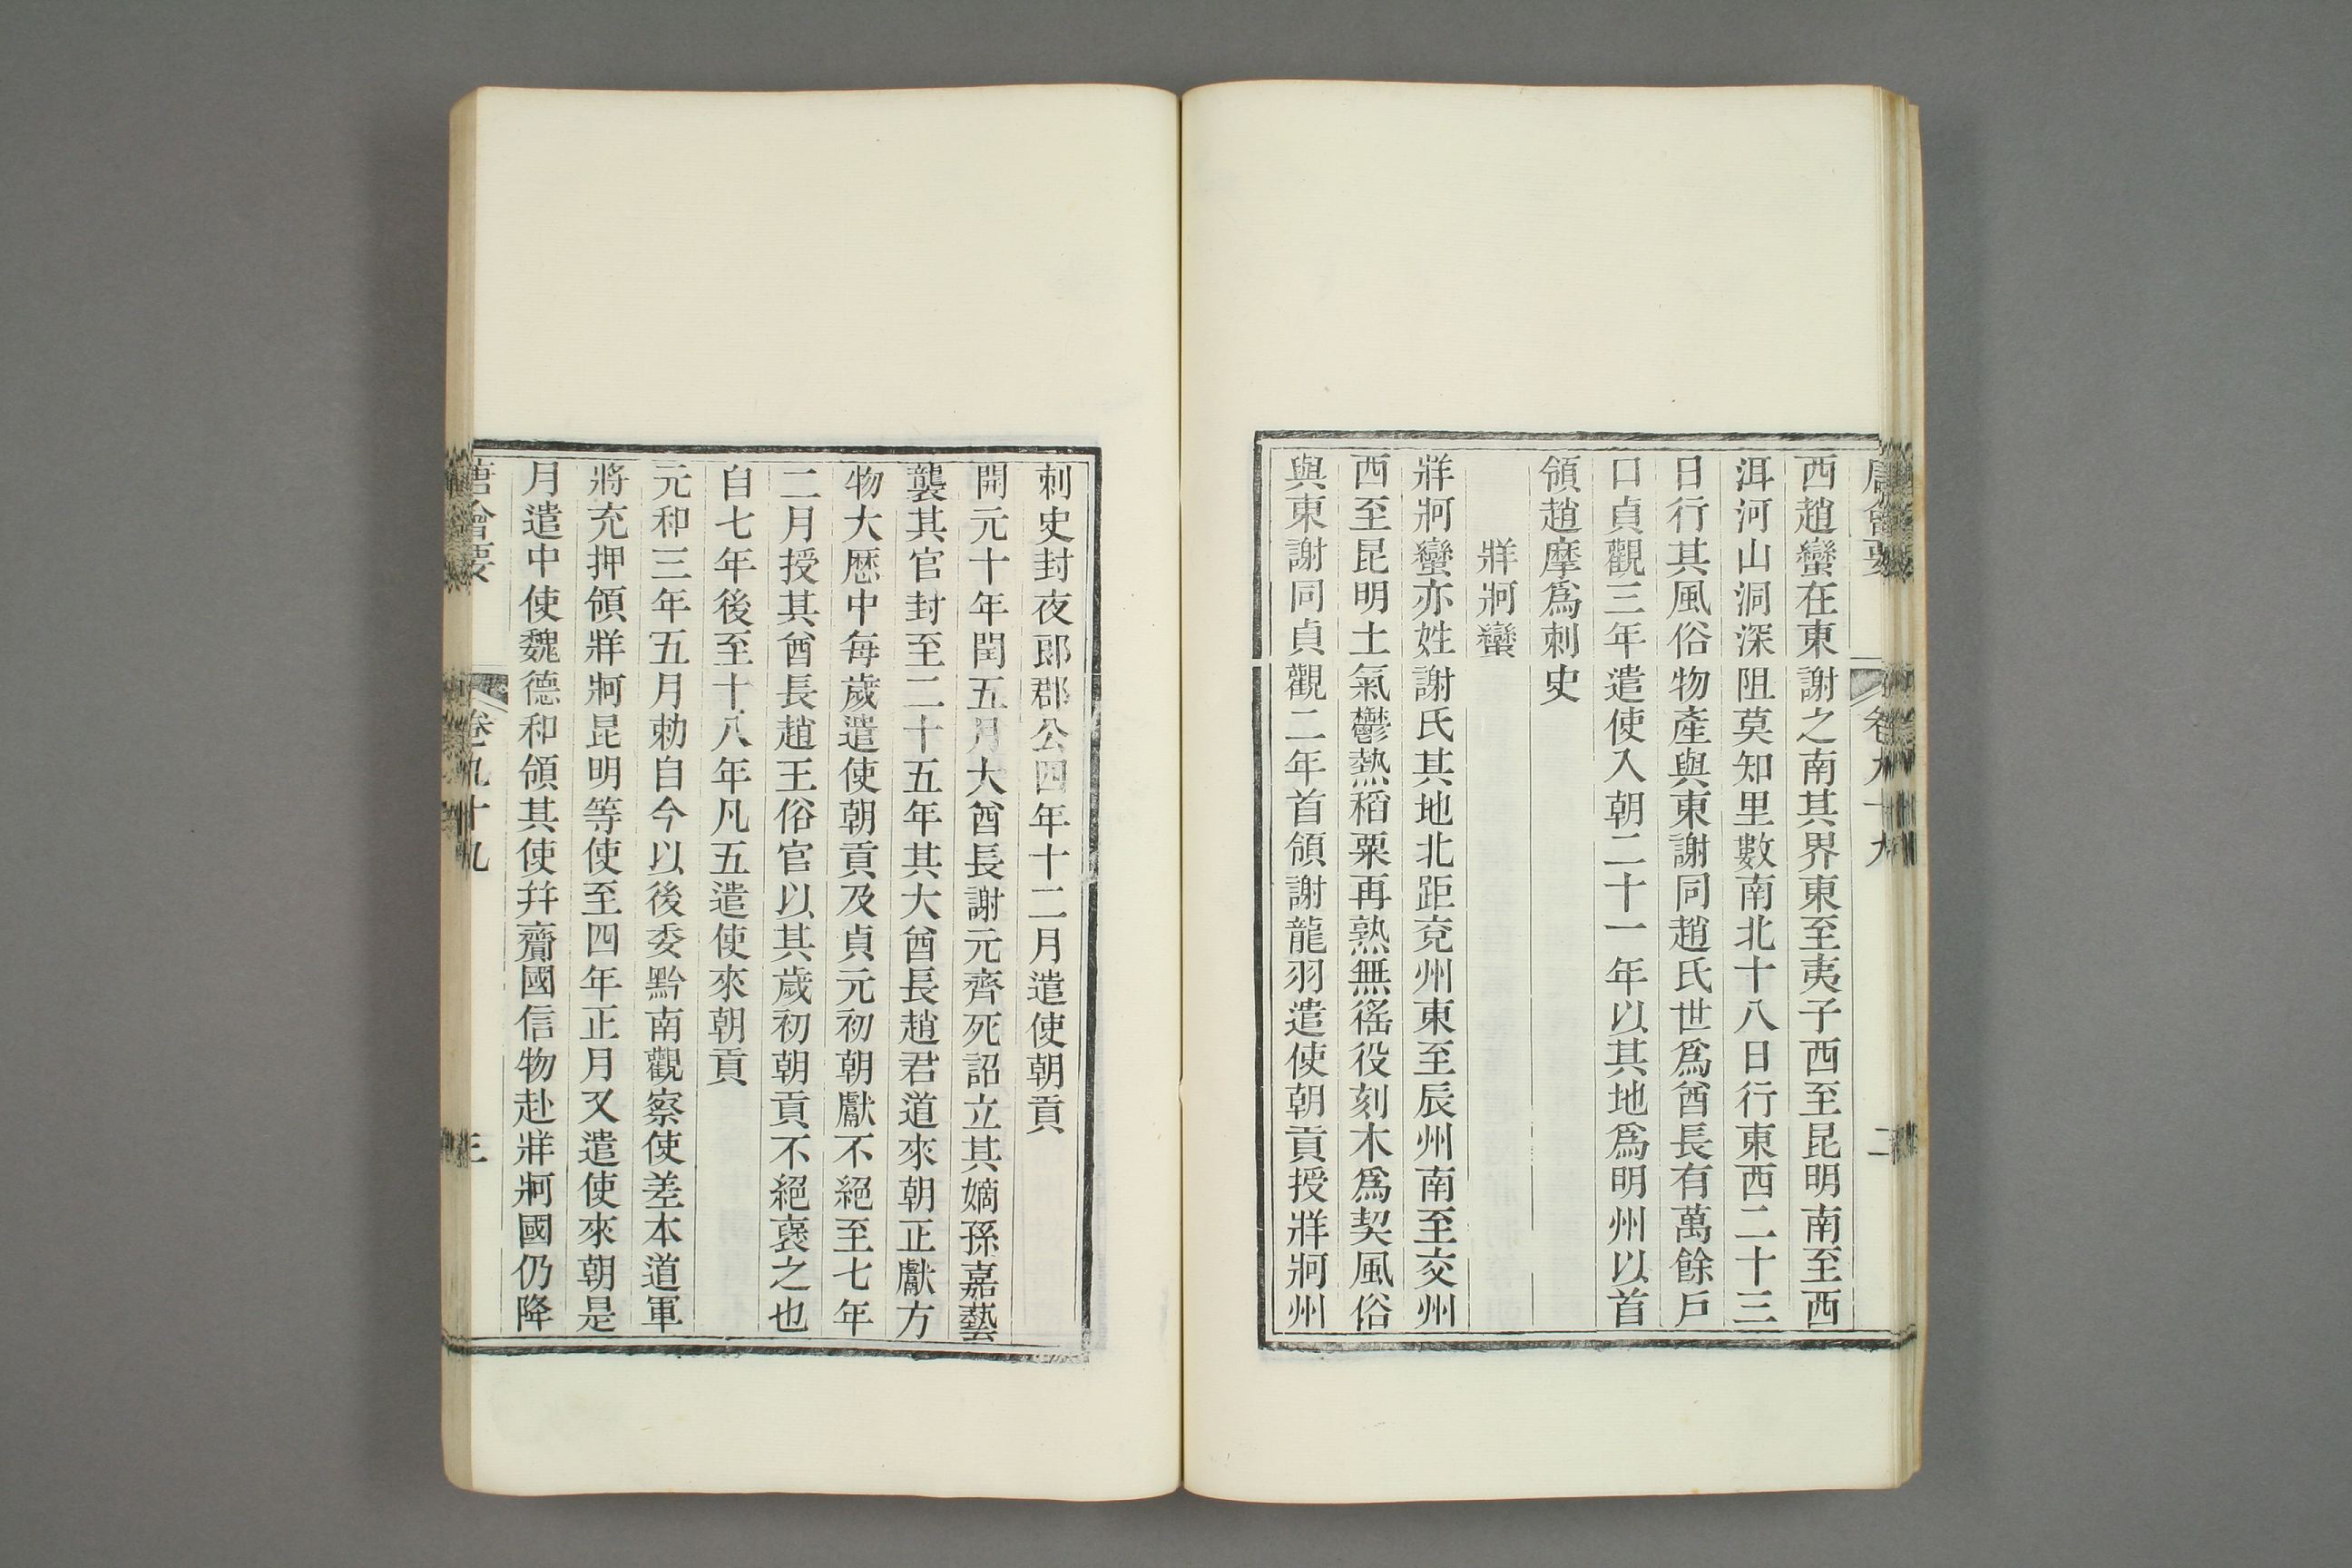 唐會要 卷九十九 二
西趙蠻在東謝之南其界東至夷子西至昆明南至西
洱河山洞深阻莫知里數南北十八日行東西二十三
日行其風俗物產與東謝同趙氏世爲酋長有萬餘戶
口貞觀三年遣使入朝二十一年以其地爲明州以首
領趙摩爲刺史
牂牁蠻
牂牁蠻亦姓謝氏其地北距兗州東至辰州南至交州
西至昆明土氣鬱熱稻粟再熟無徭役刻木爲契風俗
與東謝同貞觀二年首領謝龍羽遣使朝貢授牂牁州
刺史封夜郎郡公四年十二月遣使朝貢
開元十年閏五月大酋長謝元齊死詔立其嫡孫嘉藝
襲其官封至二十五年其大酋長趙君道來朝正獻方
物大歷中每歲遣使朝貢及貞元初朝獻不絕至七年
二月授其酋長趙王俗官以其歲初朝貢不絕褒之也
自七年後至十八年凡五遣使來朝貢
元和三年五月勅自今以後委黔南觀察使差本道軍
將充押領牂牁昆明等使至四年正月又遣使來朝是
月遣中使魏德和領其使幷齎國信物赴牂牁國仍降
唐會要 卷九十九 三